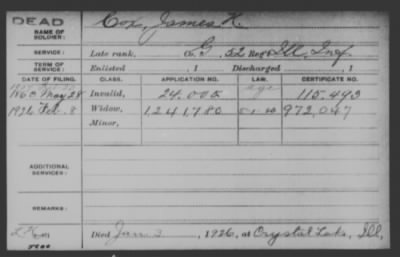 DEAD
NAME OF SOLDIER: Cox, James K.
SERVICE: Late rank, G 52 Reg't Ill, Inf.
TERM OF SERVICE: Enlisted , 1 Discharged , 1
DATE OF FILING. CLASS. APPLICATION NO. LAW. CERTIFICATE NO.
May 28 Invalid, 24.005 115,493
Feb. 8 Widow, 1,241,780 972,047
Minor,
ADDITIONAL SERVICES:
REMARKS:
Died Jan 3 , 1926, at Crystal Lake, Ill,